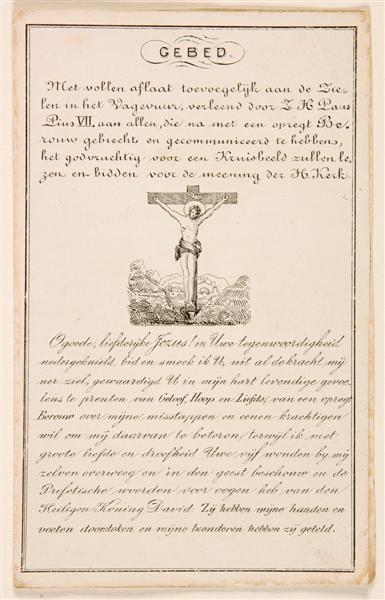 GEBED.
Met vollen aflaat toevoegelijk aan de Zie-
len in het Vagevuur, verleend door Z. H. Paus
Pius VII. aan allen, die na met een opregt Be-
rouw gebiecht en gecommuniceerd te hebben,
het godvruchtig voor een Kruisbeeld zullen le-
zen en bidden voor de meening der H. Kerk.
O goede, liefderijke Jezus! in Uwe tegenwoordigheid
nedergeknield, bid en smeek ik U, uit al de kracht mij-
ner ziel, gewaardigd U in mijn hart levendige gevoe-
lens te prenten van Geloof, Hoop en Liefde, van een opregt
Berouw over mijne misstappen en eenen krachtigen
wil om mij daarvan te beteren, terwijl ik met
groote liefde en droefheid Uwe vijf wonden by mij
zelven overweeg en in den geest beschouw en de
Profetische woorden voor oogen heb van den
Heiligen Koning David. Zij hebben mijne handen en
voeten doorstoken en mijne beenderen hebben zij geteld.